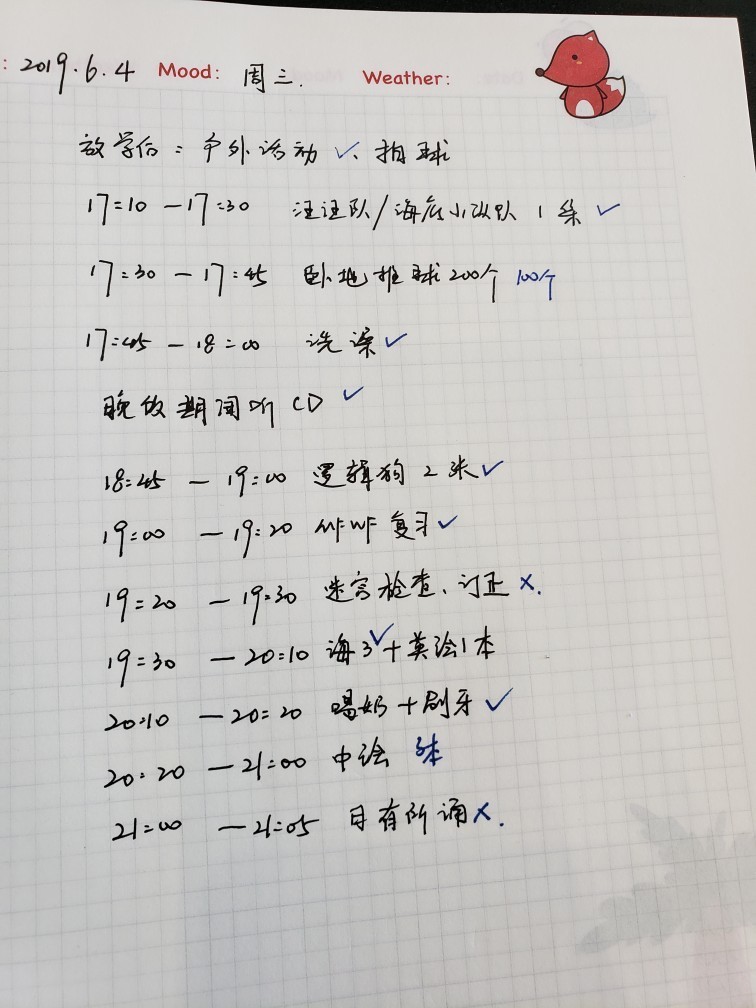 : 2019.6.4 Mood: 周三. Weather:
放学后: 户外活动 ✓、拍球
17:10 — 17:30 汪汪队/海底小纵队 1集 ✓
17:30 — 17:45 卧地推球200个 100个
17:45 — 18:00 洗澡 ✓
晚饭期间听CD ✓
18:45 — 19:00 逻辑狗 2张 ✓
19:00 — 19:20 WFWF 复习 ✓
19:20 — 19:30 迷宫检查、订正 ×.
19:30 — 20:10 海3 ✓ + 英绘1本
20:10 — 20:20 喝奶+刷牙 ✓
20:20 — 21:00 中绘 3本
21:00 — 21:05 日有所诵 ×.